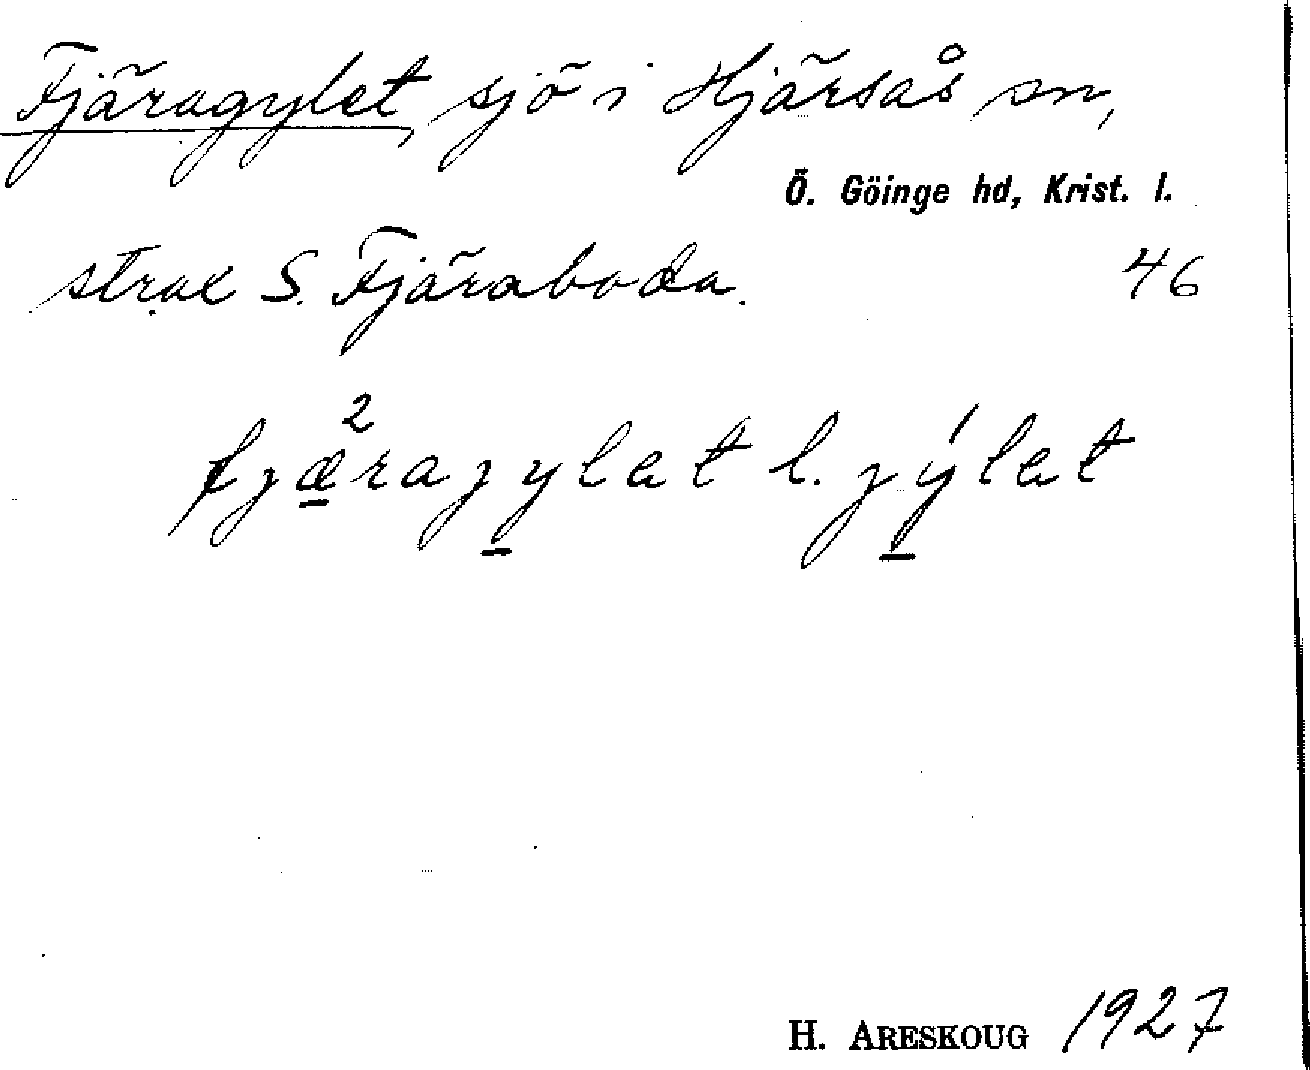 Fjäragylet, sjö i Hjärsås sn,
Ö. Göinge hd, Krist. l.
strax S. Fjäraboda. 46
fjæ²ragylet l. gýlet
H. ARESKOUG 1927